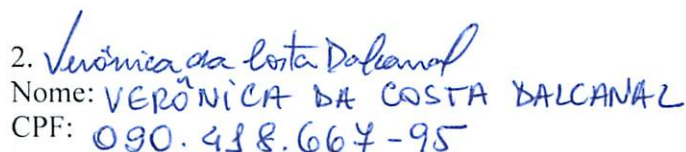 2. Verônica da Costa Dalcanal
Nome: VERÔNICA DA COSTA DALCANAL
CPF: 090.418.667-95